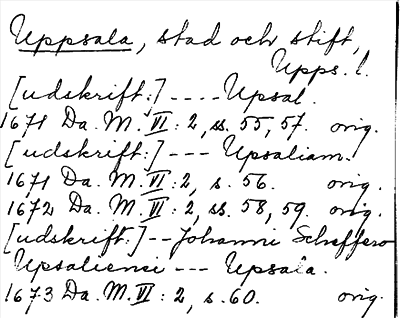 Uppsala, stad och stift,
Upps. l.
[udskrift:] ---- Upsal.
1671 Da. M. VI: 2, ss. 55, 57. orig.
[udskrift:] --- Upsaliam.
1671 Da. M. VI: 2, s. 56. orig.
1672 Da. M. VI: 2, ss. 58, 59. orig.
[udskrift:] -- Johanni Scheffero
Upsaliensi --- Upsala.
1673 Da. M. VI: 2, s. 60. orig.